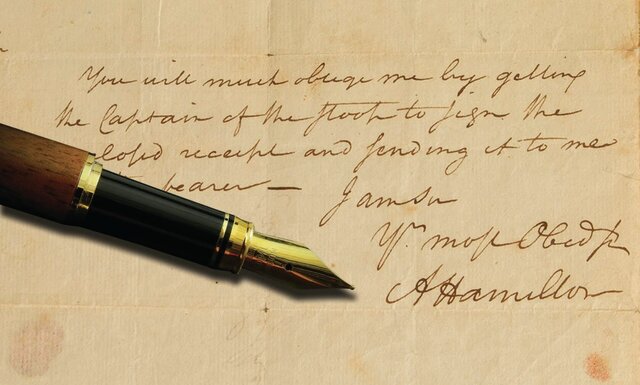 You will much oblige me by getting
the Captain of the Sloop to sign the
closed receipt and sending it to me
bearer —
I am Sir
Yr. most Obed st
A Hamilton